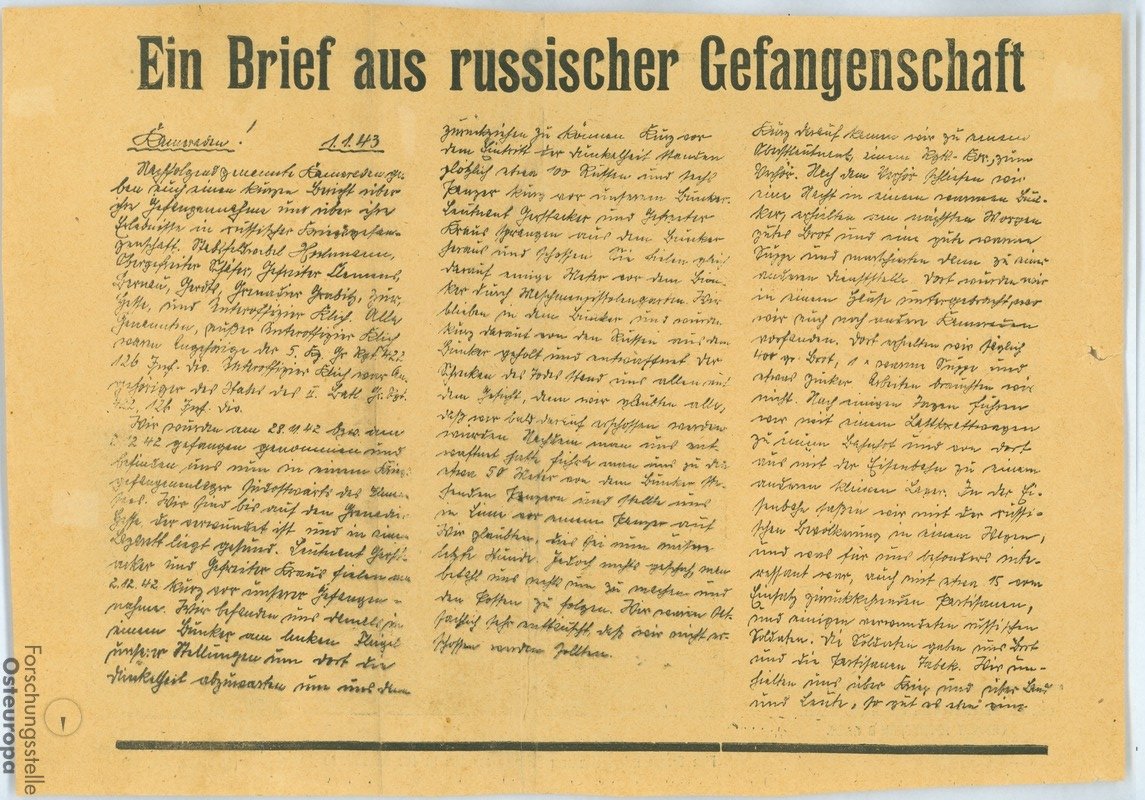 Ein Brief aus russischer Gefangenschaft
Kameraden! 1.1.43
Nachfolgend genannte Kameraden ge-
ben euch einen kurzen Bericht über
ihre Gefangennahme und über ihre
Erlebnisse in russischer Kriegsgefan-
genschaft. Stabsfeldwebel
Obergefreiter Schäfer, Gefreiter Clemens,
Grenadier Grabitz,
und Unteroffizier Klich. Alle
Genannten, außer Unteroffizier Klich
waren Angehörige der 5. Kp. Gr. Rgt. 422
126 Inf. Div. Unteroffizier Klich war An-
gehöriger des Stabes des II. Batl. Gr. Rgt.
422, 126 Inf. Div.
Wir wurden am 28.11.42 bzw. am
2.12.42 gefangen genommen und
befinden uns nun in einem Kriegs-
gefangenenlager südostwärts des
Wir sind bis auf den Grenadier
der verwundet ist und in einem
Lazarett liegt gesund. Leutnant
und Gefreiter Kraus fielen am
2.12.42 kurz vor unserer Gefangen-
nahme. Wir befanden uns damals in
einem Bunker am linken Flügel
unserer Stellungen um dort die
Dunkelheit abzuwarten um uns dann
zurückziehen zu können. Kurz vor
dem Eintritt der Dunkelheit standen
plötzlich etwa 100 Russen und sechs
Panzer kurz vor unserem Bunker.
Leutnant und Gefreiter
Kraus sprangen aus dem Bunker
heraus und schossen. Sie fielen gleich
darauf einige Meter vor dem Bun-
ker durch Maschinenpistolengarben. Wir
blieben in dem Bunker und wurden
kurz darauf von den Russen aus dem
Bunker geholt und entwaffnet. Der
Schrecken des Todes stand uns allen auf
dem Gesicht, denn wir glaubten alle,
daß wir bald darauf erschossen werden
würden. Nachdem man uns ent-
waffnet hatte führte man uns zu den
etwa 50 Meter von dem Bunker ste-
henden Panzern und stellte uns
in Linie vor einem Panzer auf.
Wir glaubten, dies sei nun unsere
letzte Stunde. Jedoch nichts geschah, man
befahl uns rechts um zu machen und
den Posten zu folgen. Wir waren tat-
sächlich sehr enttäuscht, daß wir nicht er-
schossen werden sollten.
Kurz darauf kamen wir zu einem
Oberstleutnant, einem Rgts. Kdr. zum
Verhör. Nach dem Verhör schliefen wir
eine Nacht in einem warmen Bun-
ker, erhielten am nächsten Morgen
gutes Brot und eine gute warme
Suppe und marschierten dann zu einer
anderen Dienststelle. Dort wurden wir
in einem Hause untergebracht, wo
wir auch noch andere Kameraden
vorfanden. Dort erhielten wir täglich
400 gr. Brot, warme Suppe und
etwas Zucker. Arbeiten brauchten wir
nicht. Nach einigen Tagen fuhren
wir mit einem Lastkraftwagen
zu einem Bahnhof und von dort
aus mit der Eisenbahn zu einem
anderen kleinen Lager. In der Ei-
senbahn saßen wir mit der russi-
schen Bevölkerung in einem Wagen,
und was für uns besonders inte-
ressant war, auch mit etwa 15 vom
Einsatz zurückkehrenden Partisanen,
und einigen verwundeten russischen
Soldaten. Die Soldaten gaben uns Brot
und die Partisanen Tabak. Wir un-
hielten uns über Krieg und über Land
und Leute, so gut es eben ging
Forschungsstelle
Osteuropa